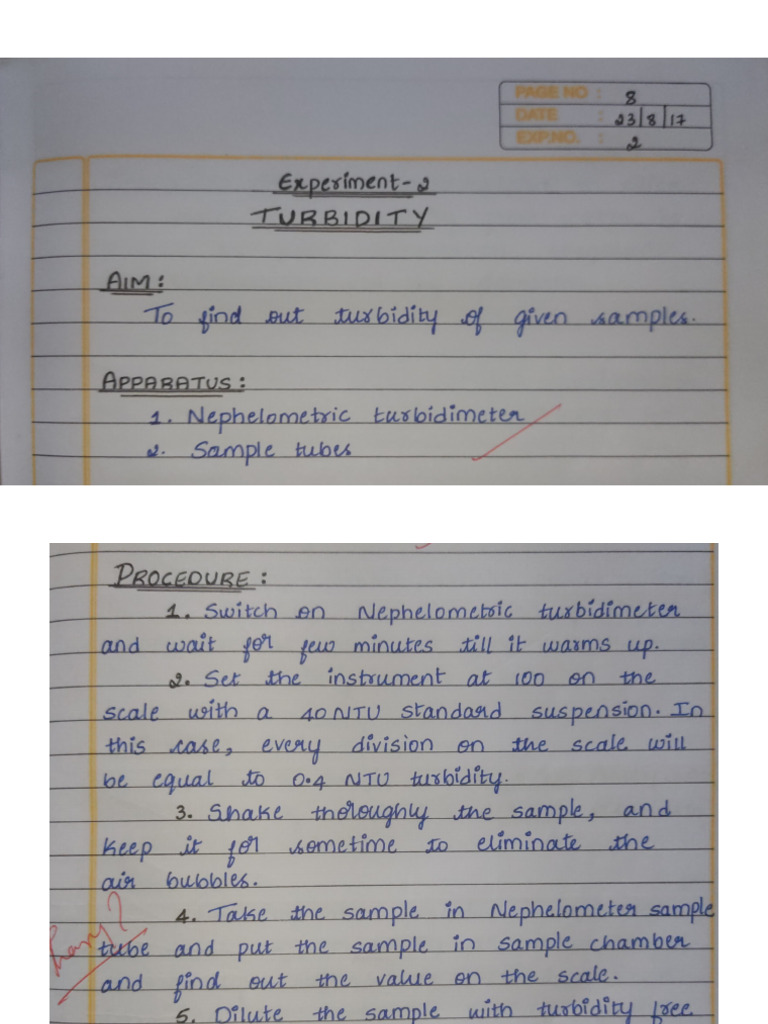 PAGE NO : 8
DATE : 23/8/17
EXP.NO. : 2
Experiment-2
TURBIDITY
AIM:
To find out turbidity of given samples.
APPARATUS:
1. Nephelometric turbidimeter
2. Sample tubes
PROCEDURE:
1. Switch on Nephelometric turbidimeter
and wait for few minutes till it warms up.
2. Set the instrument at 100 on the
scale with a 40 NTU standard suspension. In
this case, every division on the scale will
be equal to 0.4 NTU turbidity.
3. Shake thoroughly the sample, and
keep it for sometime to eliminate the
air bubbles.
4. Take the sample in Nephelometer sample
tube and put the sample in sample chamber
and find out the value on the scale.
5. Dilute the sample with turbidity free